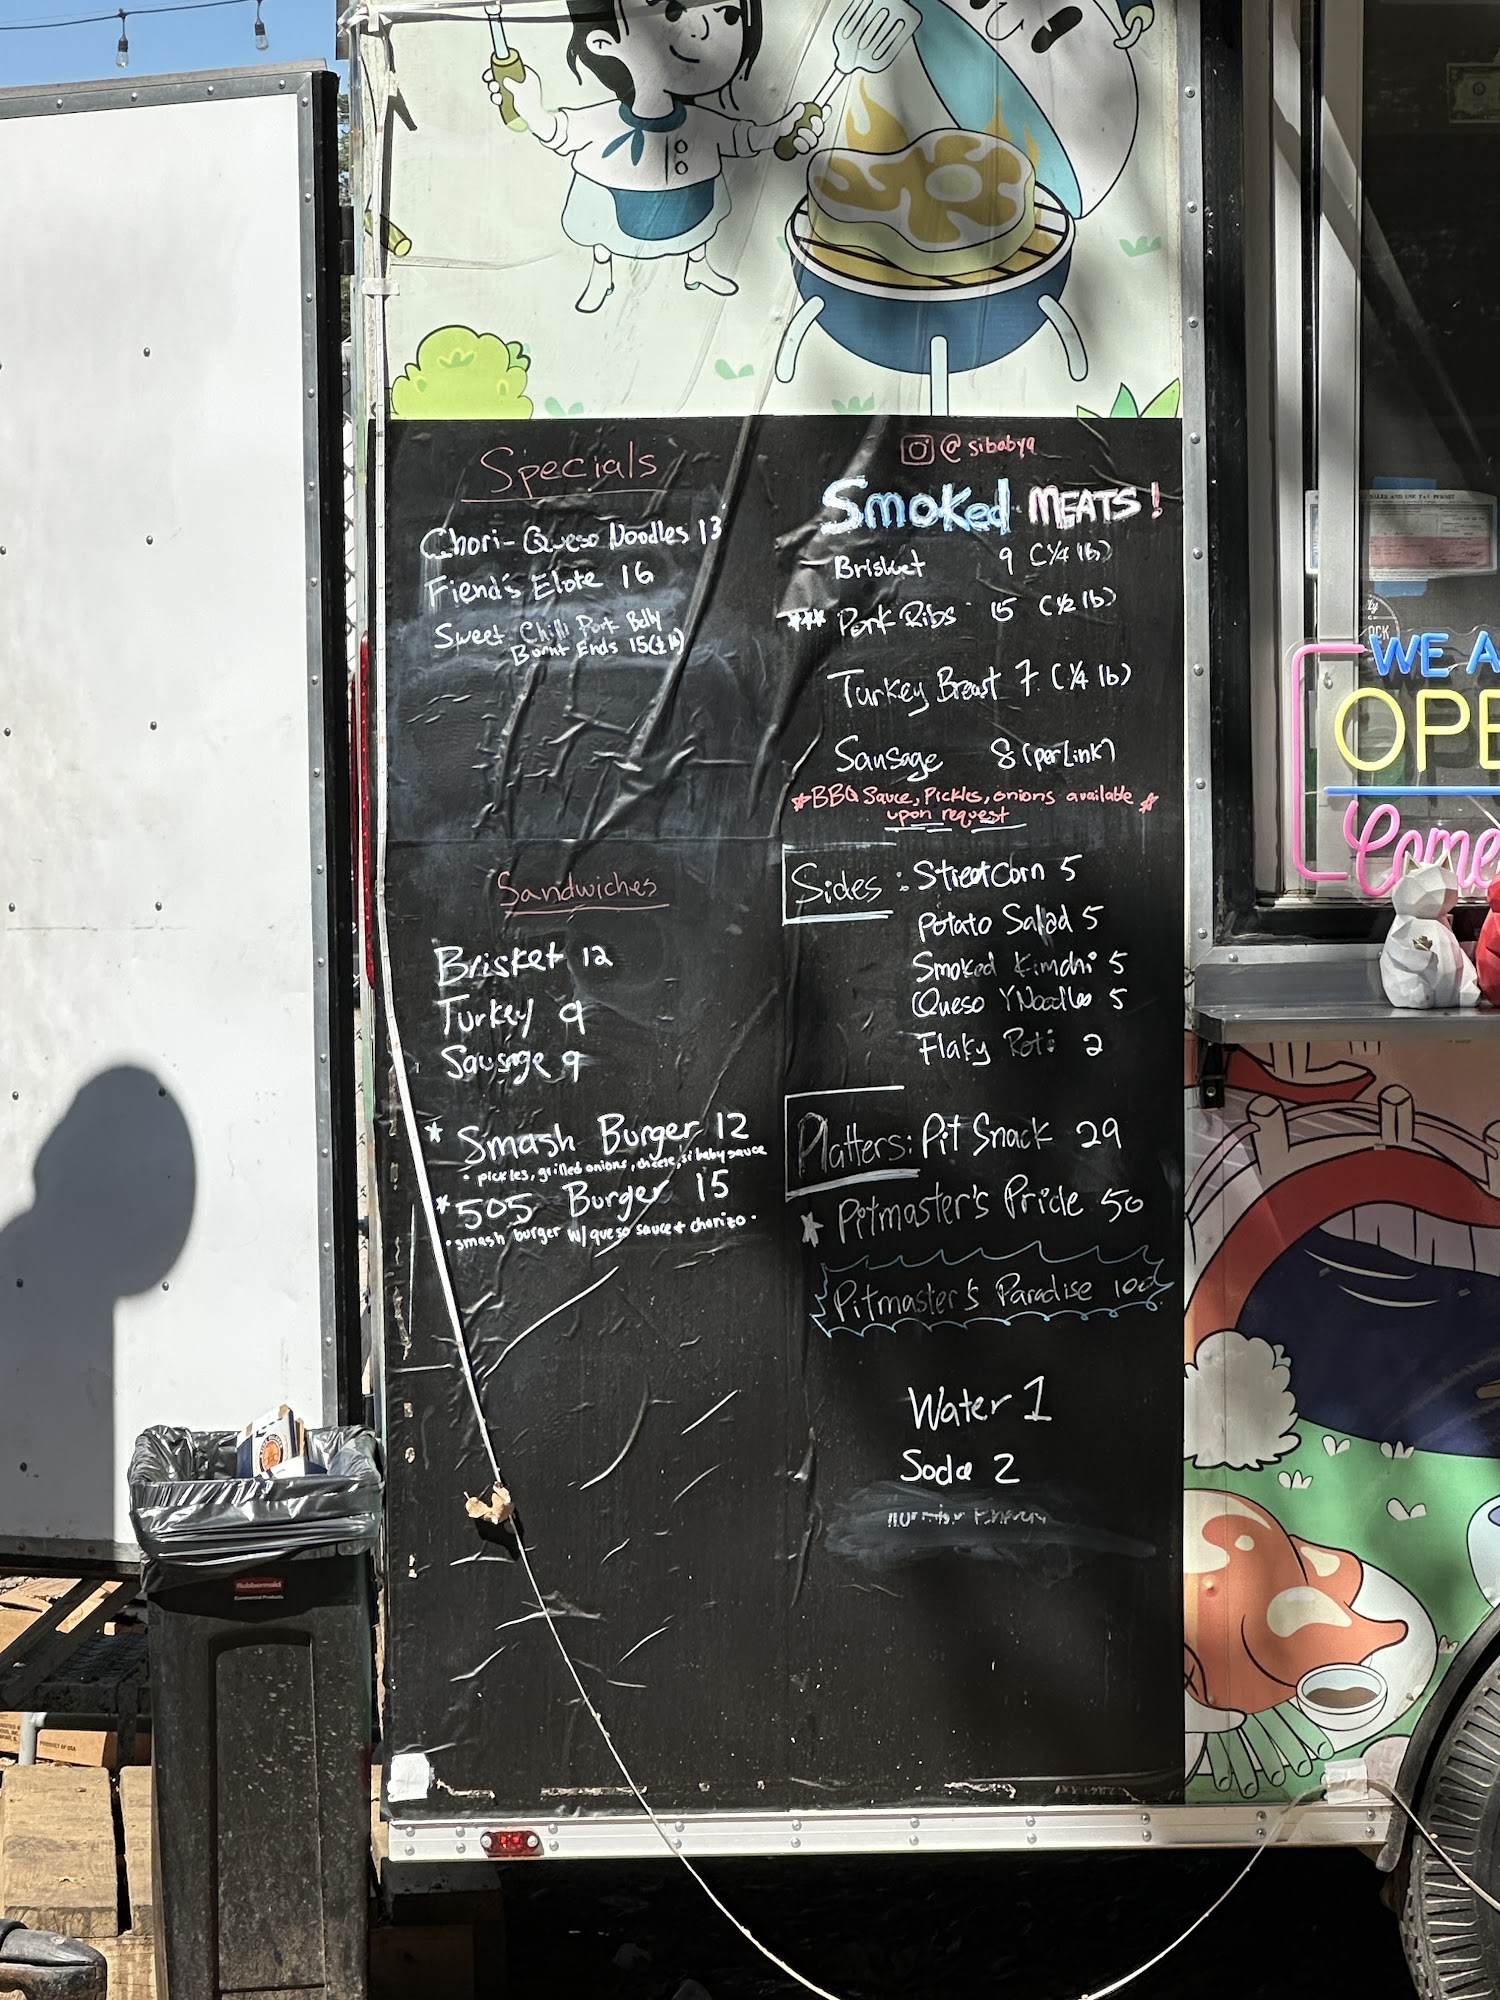 Specials
Chori-Queso Noodles 13
Fiend's Elote 16
Sweet Chilli Pork Belly
Burnt Ends 15(½ lb)
Sandwiches
Brisket 12
Turkey 9
Sausage 9
* Smash Burger 12
• pickles, grilled onions, cheese, si baby sauce
* 505 Burger 15
• smash burger w/ queso sauce + chorizo •
@sibabyq
Smoked MEATS!
Brisket 9 (¼ lb)
*** Pork Ribs 15 (½ lb)
Turkey Breast 7 (¼ lb)
Sausage 8 (per Link)
*BBQ Sauce, Pickles, onions available *
upon request
Sides: Street Corn 5
Potato Salad 5
Smoked Kimchi 5
Queso Y Noodles 5
Flaky Roti 2
Platters: Pit Snack 29
* Pitmaster's Pride 50
Pitmaster's Paradise 100
Water 1
Soda 2
WE A
OPE
Come
Rubbermaid
Commercial Products